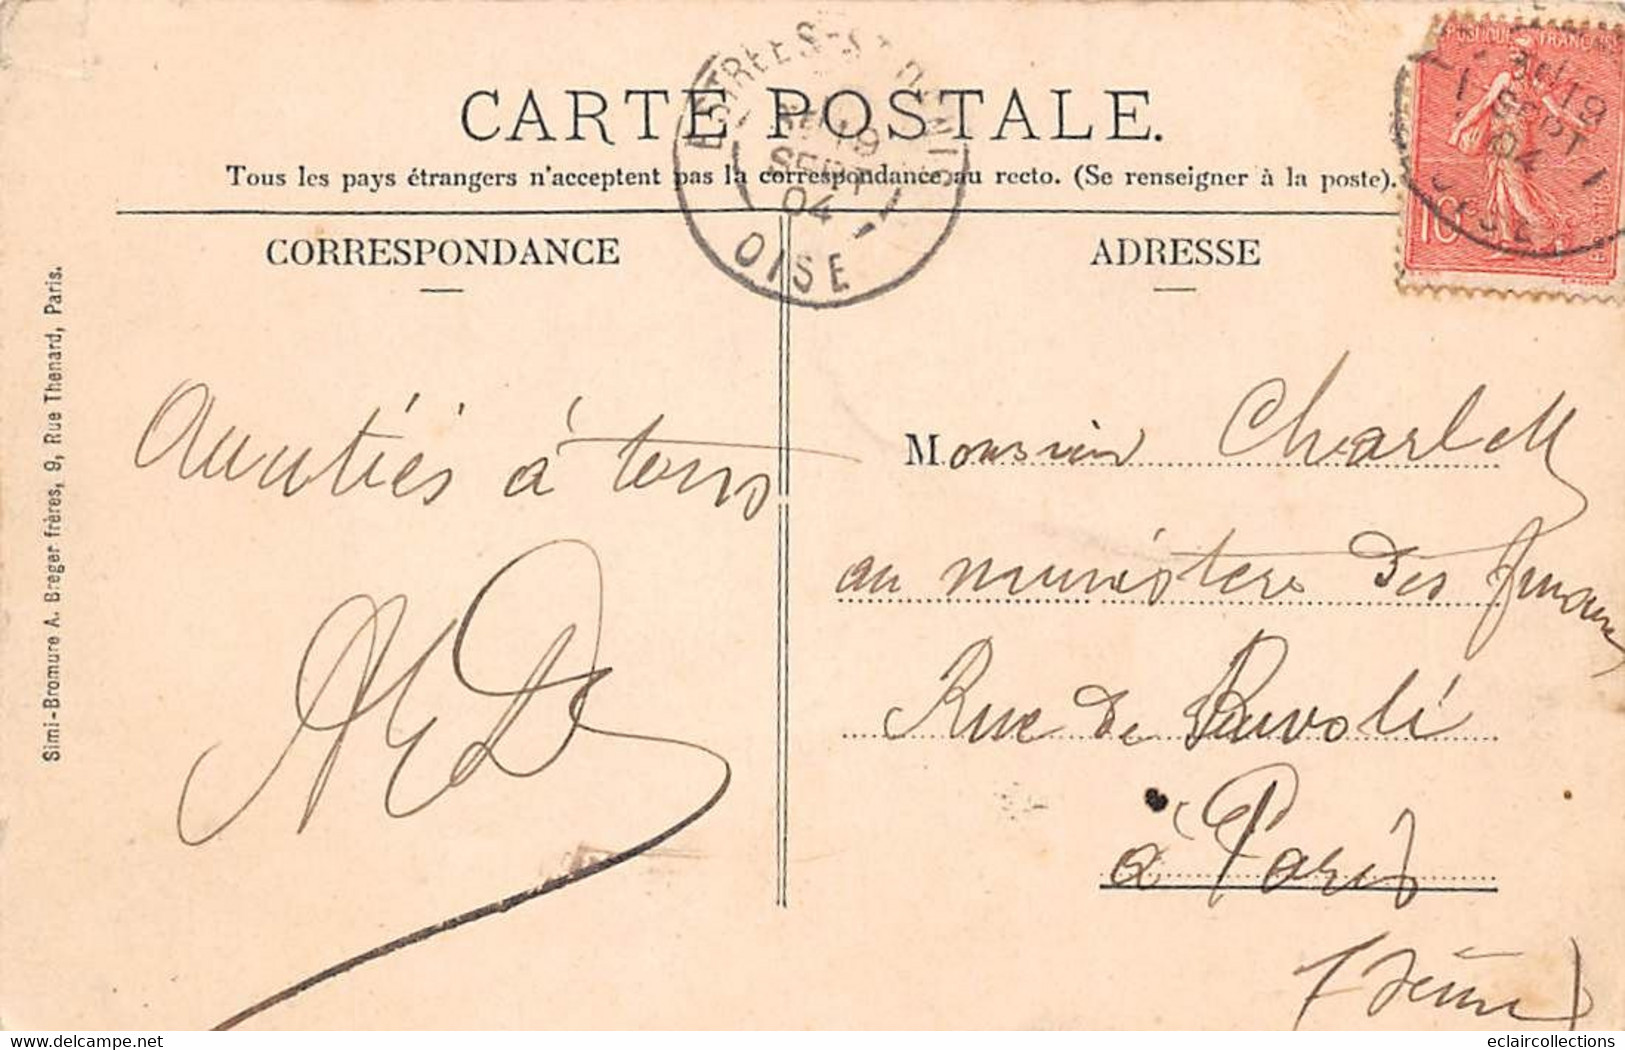 CARTE POSTALE.
Tous les pays étrangers n'acceptent pas la correspondance au recto. (Se renseigner à la poste).
ESTRÉES-ST-DENIS
19
SEPT
04
OISE
POSTIQUE FRANÇAISE
19
SEPT
04
OISE
10
POSTES
CORRESPONDANCE
ADRESSE
Simi-Bromure A. Breger frères, 9, Rue Thenard, Paris.
Amitiés à tous
Monsieur
au ministère des finances
Rue de Rivoli
à Paris
(Seine)
eclaircollections